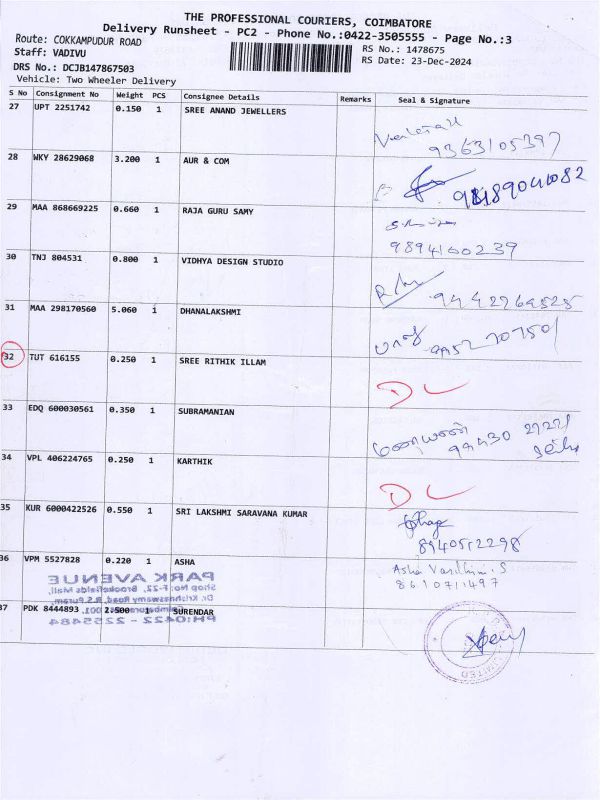 THE PROFESSIONAL COURIERS, COIMBATORE
Delivery Runsheet - PC2 - Phone No.:0422-3505555 - Page No.:3
Route: COKKAMPUDUR ROAD
RS No.: 1478675
Staff: VADIVU
RS Date: 23-Dec-2024
DRS No.: DCJB147867503
Vehicle: Two Wheeler Delivery
S No Consignment No Weight PCS Consignee Details Remarks Seal & Signature
27 UPT 2251742 0.150 1 SREE ANAND JEWELLERS
9363105397
28 WKY 28629068 3.200 1 AUR & COM
29 MAA 868669225 0.660 1 RAJA GURU SAMY
9894160239
30 TNJ 804531 0.800 1 VIDHYA DESIGN STUDIO
9442269525
31 MAA 298170560 5.060 1 DHANALAKSHMI
32 TUT 616155 0.250 1 SREE RITHIK ILLAM
DL
33 EDQ 600030561 0.350 1 SUBRAMANIAN
99430 27221
34 VPL 406224765 0.250 1 KARTHIK
DL
35 KUR 6000422526 0.550 1 SRI LAKSHMI SARAVANA KUMAR
8940512298
36 VPM 5527828 0.220 1 ASHA
8610711497
PARK AVENUE
Shop No: F-22, Brookefields Mall,
Dr. Krishnaswamy Road, R.S.Puram,
Coimbatore 001.
PH:0422 - 2255484
37 PDK 8444893 2.500 SURENDAR
LIMITED